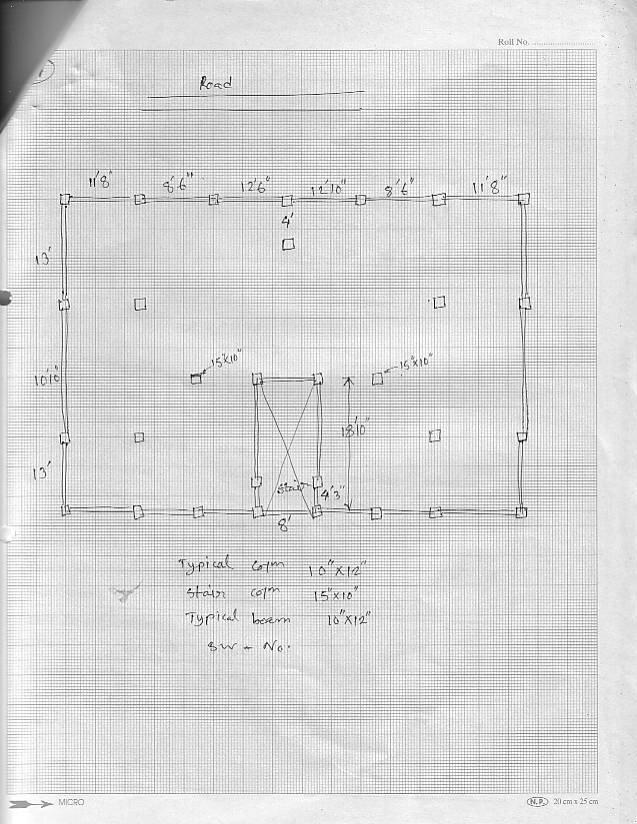 Roll No. ........................
1
Road
11'8" 8'6" 12'6" 12'10" 8'6" 11'8"
4'
13'
15"x10" 15"x10"
10'10"
18'10"
13'
stair 4'3"
8'
Typical colm 10"x12"
Stair colm 15"x10"
Typical beam 10"x12"
SW - No.
MICRO
N.P. 20 cm x 25 cm